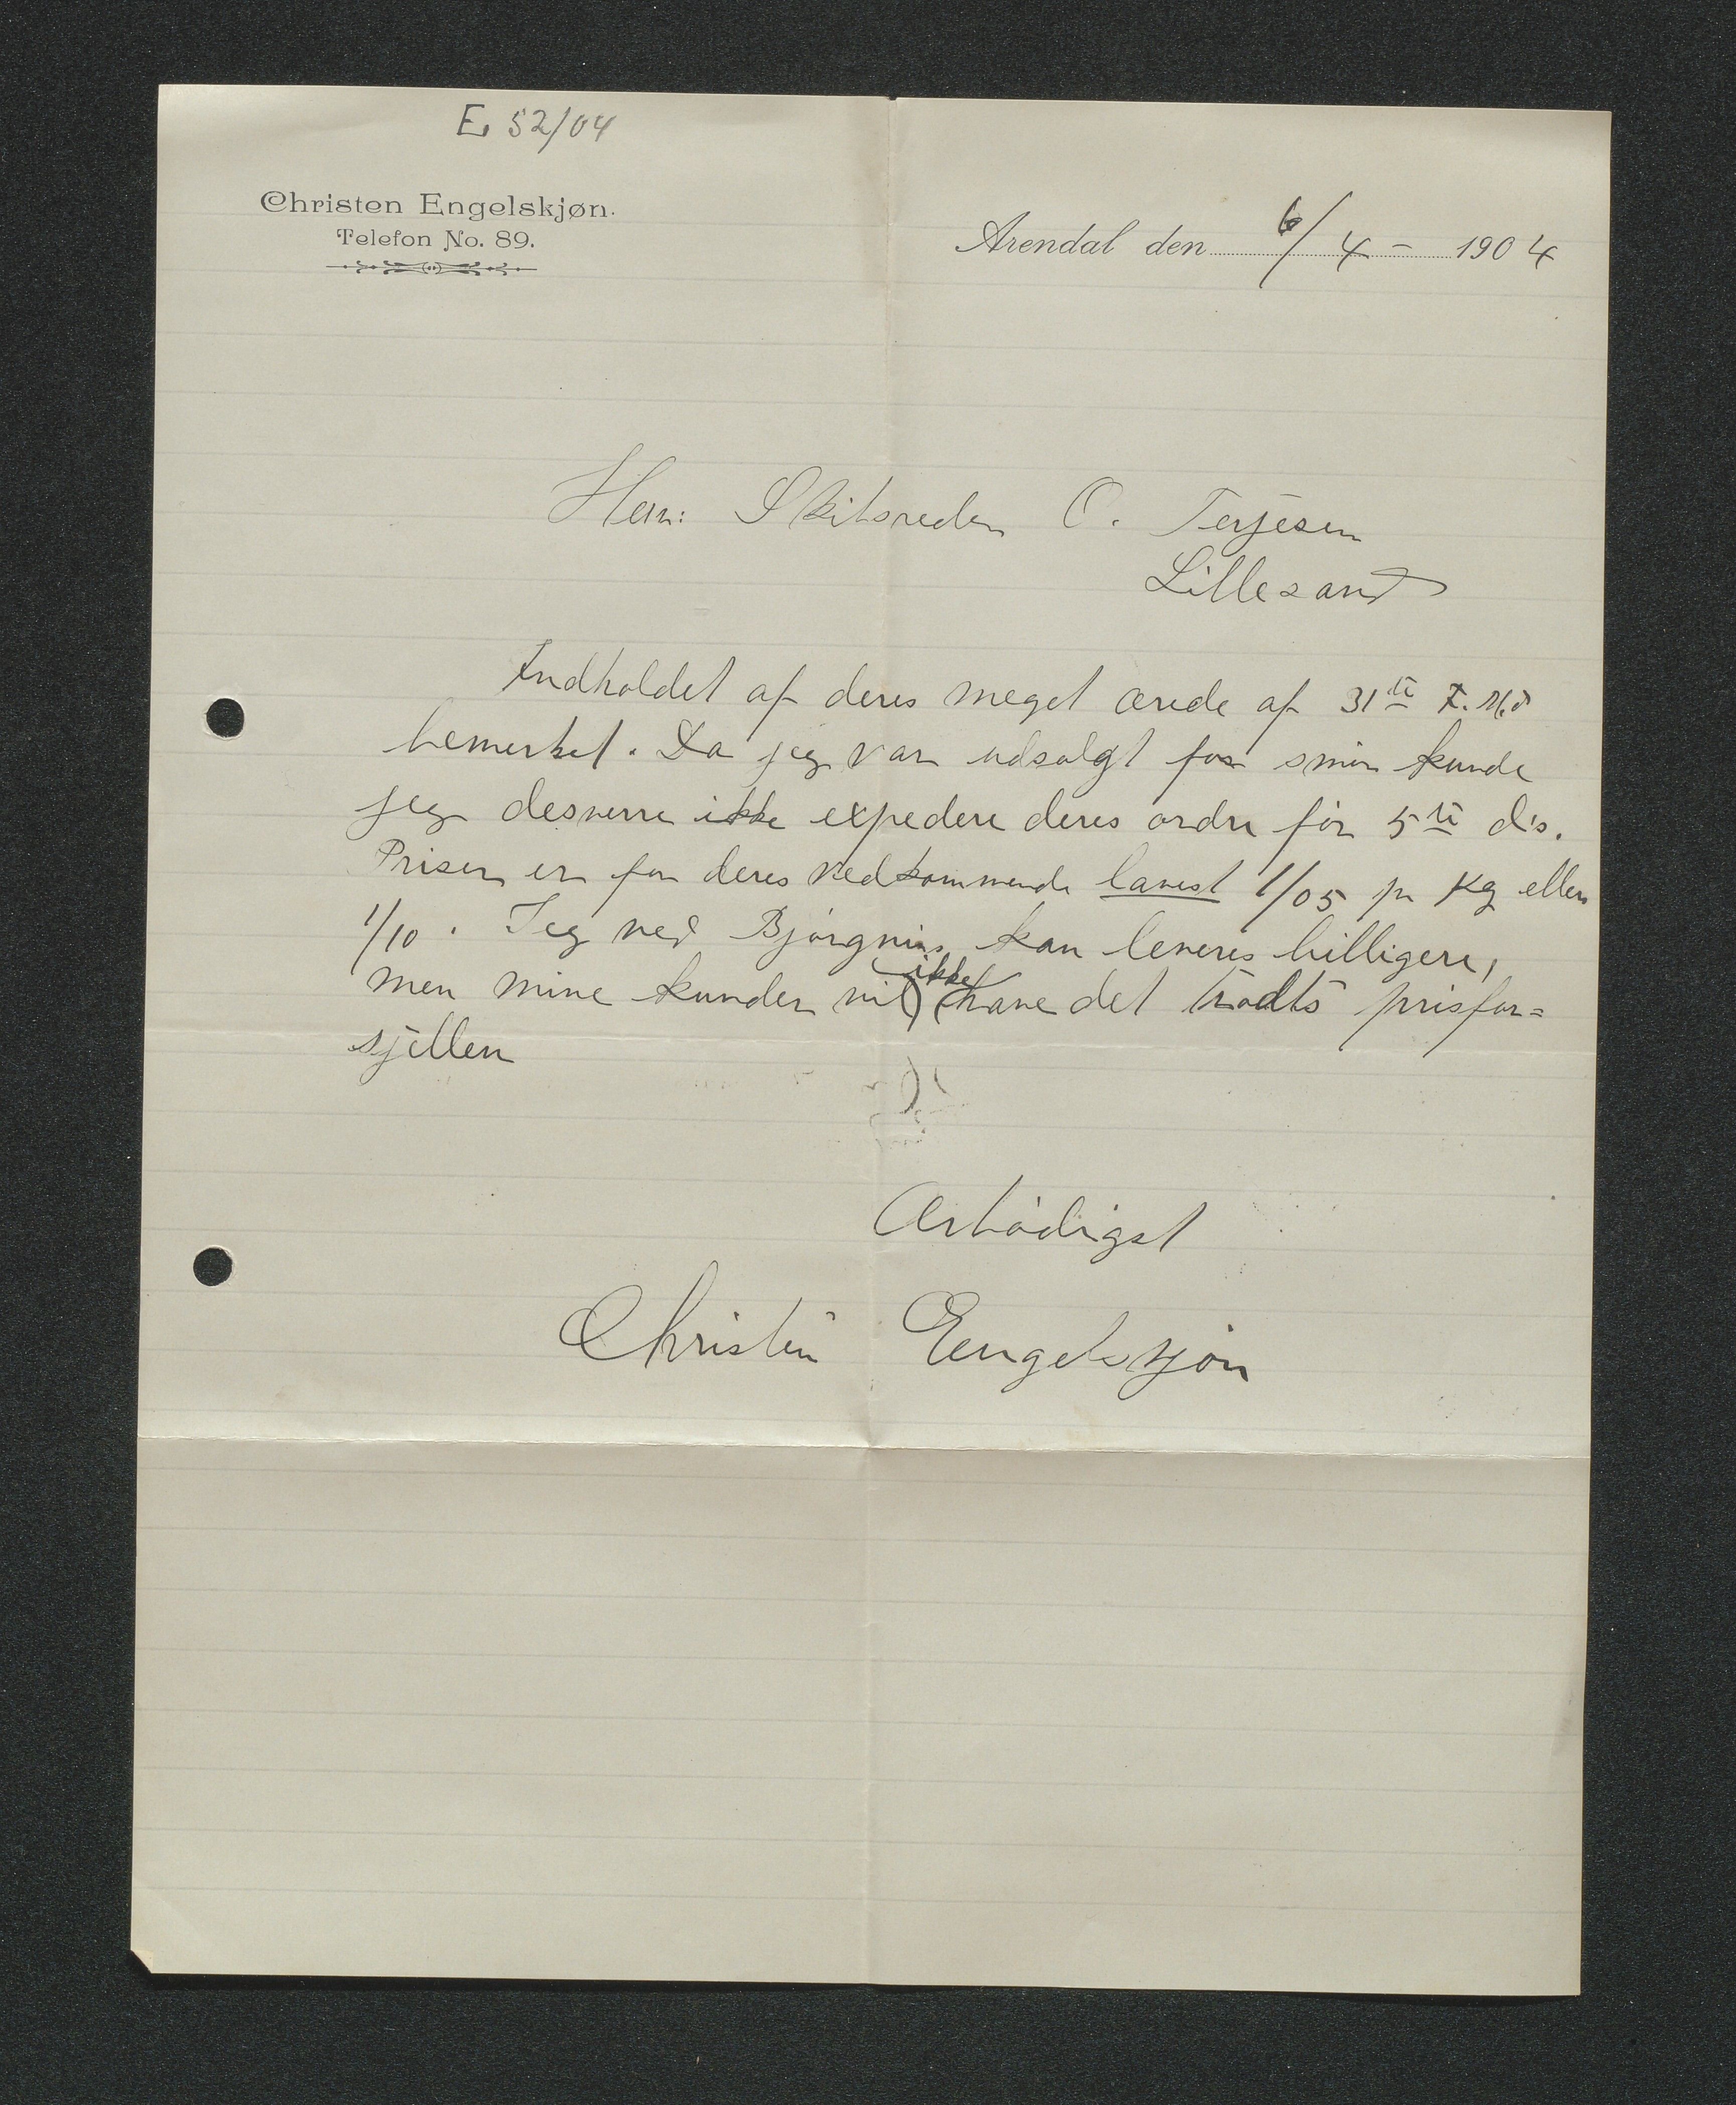 E. 52/04
Christen Engelskjøn.
Telefon No. 89.
Arendal den 6/4 - 1904
Herr: Skibsreder O. Terjesen
Lillesand
Indholdet af deres meget ærede af 31te f. Md
bemerket. Da jeg var udsolgt for smör kunde
jeg desverre ikke expedere deres ordre för 5te ds.
Prisen er for deres vedkommende lavest 1/05 pr Kg eller
1/10. Jeg ved Björgnins kan leveres billigere,
men mine kunder vil ikke have det trodts prisfor=
sjellen
Ærbödigst
Christen Engelskjön